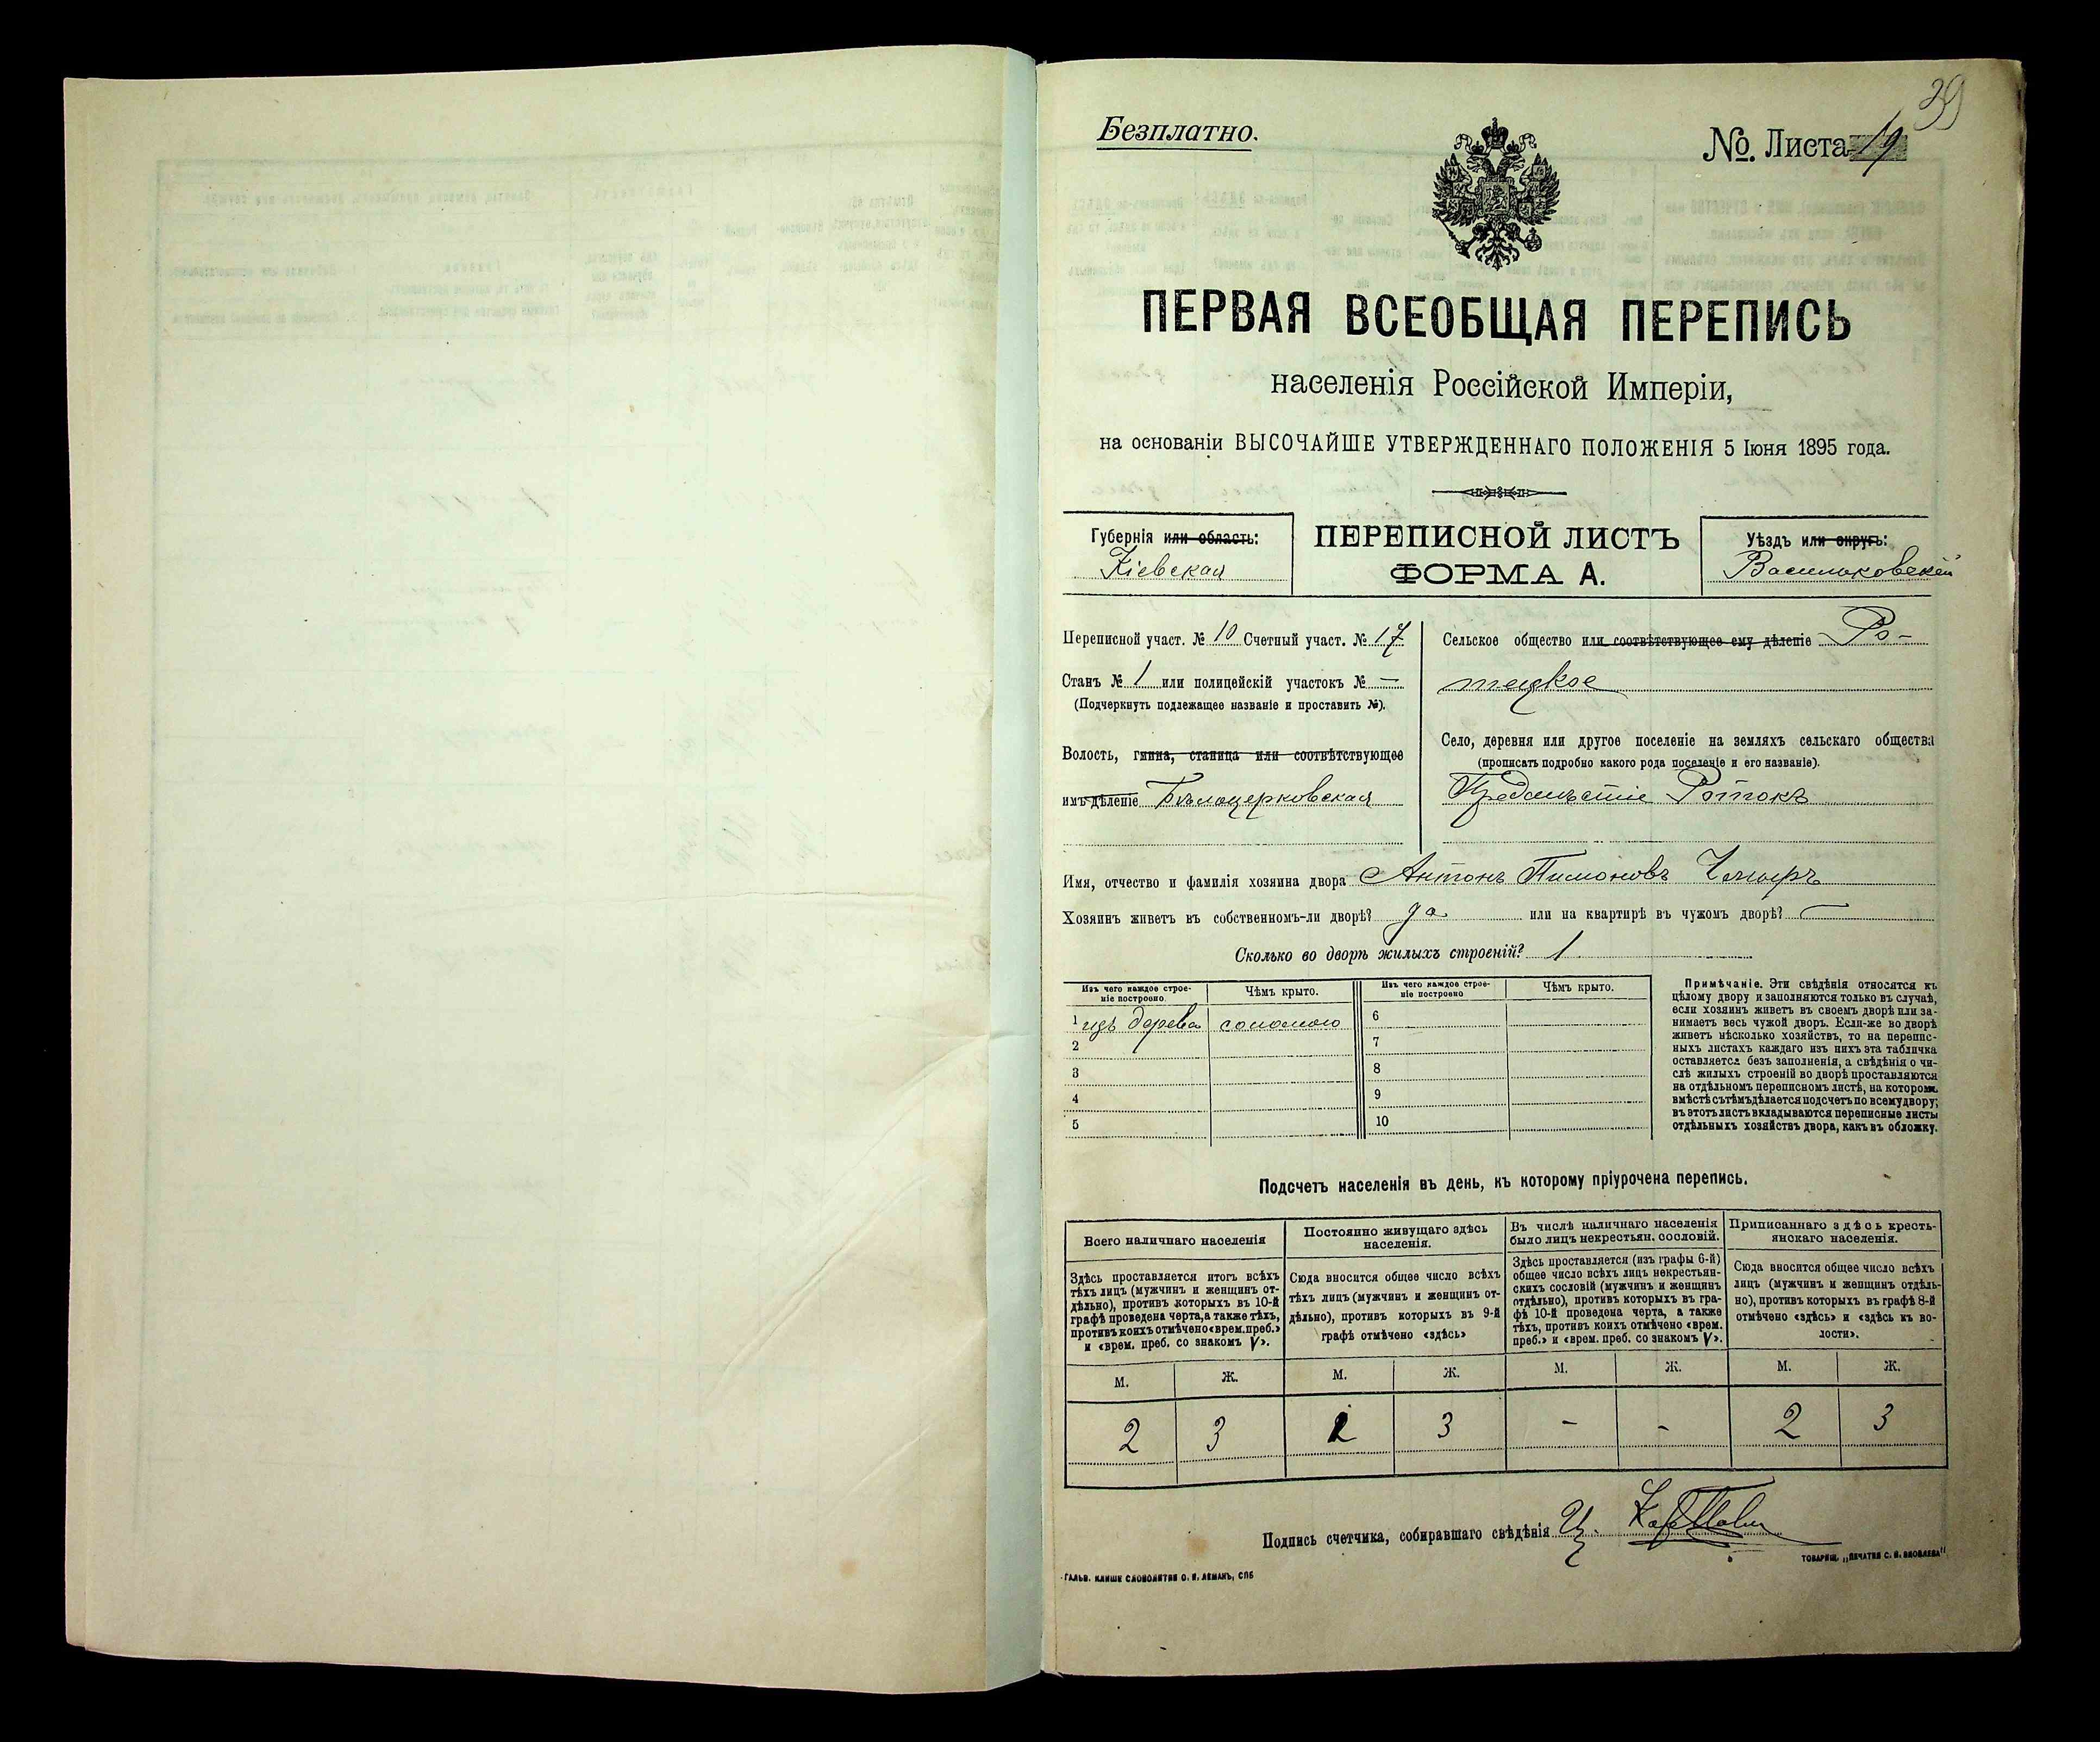 39
Безплатно.
№ Листа 19
ПЕРВАЯ ВСЕОБЩАЯ ПЕРЕПИСЬ
населенія Россійской Имперіи,
на основаніи ВЫСОЧАЙШЕ УТВЕРЖДЕННАГО ПОЛОЖЕНІЯ 5 Іюня 1895 года.
Губернія или область:
Кіевская
ПЕРЕПИСНОЙ ЛИСТЪ
ФОРМА А.
Уѣздъ или округъ:
Васильковскій
Переписной участ. № 10 Счетный участ. № 17
Станъ № 1 или полицейскій участокъ № —
(Подчеркнуть подлежащее названіе и проставить №).
Волость, гмина, станица или соотвѣтствующее
имъ дѣленіе Бѣлоцерковская
Сельское общество или соотвѣтствующее ему дѣленіе Ро-
тецкое
Село, деревня или другое поселеніе на земляхъ сельскаго общества
(прописать подробно какого рода поселеніе и его названіе).
Предмѣстіе Ротокъ
Имя, отчество и фамилія хозяина двора Антонъ Пимоновъ
Хозяинъ живетъ въ собственномъ-ли дворѣ? да или на квартирѣ въ чужомъ дворѣ? —
Сколько во дворѣ жилыхъ строеній? 1
Изъ чего каждое строе-
ніе построено
Чѣмъ крыто.
Изъ чего каждое строе-
ніе построено
Чѣмъ крыто.
1 изъ дерева соломою 6
2 7
3 8
4 9
5 10
Примѣчаніе. Эти свѣдѣнія относятся къ
цѣлому двору и заполняются только въ случаѣ,
если хозяинъ живетъ въ своемъ дворѣ или за-
нимаетъ весь чужой дворъ. Если-же во дворѣ
живетъ нѣсколько хозяйствъ, то на перепис-
ныхъ листахъ каждаго изъ нихъ эта табличка
оставляется безъ заполненія, а свѣдѣнія о чи-
слѣ жилыхъ строеній во дворѣ проставляются
на отдѣльномъ переписномъ листѣ, на которомъ
вмѣстѣ съ тѣмъ дѣлается подсчетъ по всему двору;
въ этотъ листъ вкладываются переписные листы
отдѣльныхъ хозяйствъ двора, какъ въ обложку.
Подсчетъ населенія въ день, къ которому пріурочена перепись.
Всего наличнаго населенія
Здѣсь проставляется итогъ всѣхъ
тѣхъ лицъ (мужчинъ и женщинъ от-
дѣльно), противъ которыхъ въ 10-й
графѣ проведена черта, а также тѣхъ,
противъ коихъ отмѣчено «врем. преб.»
и «врем. преб. со знакомъ V».
Постоянно живущаго здѣсь
населенія.
Сюда вносится общее число всѣхъ
тѣхъ лицъ (мужчинъ и женщинъ от-
дѣльно), противъ которыхъ въ 9-й
графѣ отмѣчено «здѣсь»
Въ числѣ наличнаго населенія
было лицъ некрестьян. сословій.
Здѣсь проставляется (изъ графы 6-й)
общее число всѣхъ лицъ некрестьян-
скихъ сословій (мужчинъ и женщинъ
отдѣльно), противъ которыхъ въ гра-
фѣ 10-й проведена черта, а также
тѣхъ, противъ коихъ отмѣчено «врем.
преб.» и «врем. преб. со знакомъ V».
Приписаннаго здѣсь кресть-
янскаго населенія.
Сюда вносится общее число всѣхъ
лицъ (мужчинъ и женщинъ отдѣль-
но), противъ которыхъ въ графѣ 8-й
отмѣчено «здѣсь» и «здѣсь къ во-
лости».
М. Ж. М. Ж. М. Ж. М. Ж.
2 3 2 3 - - 2 3
Подпись счетчика, собиравшаго свѣдѣнія
ГАЛЬВ. КЛИШЕ СЛОВОЛИТНИ О. И. ЛЕМАНЪ, СПБ
ТОВАРИЩ. „ПЕЧАТНЯ С. П. ЯКОВЛЕВА"